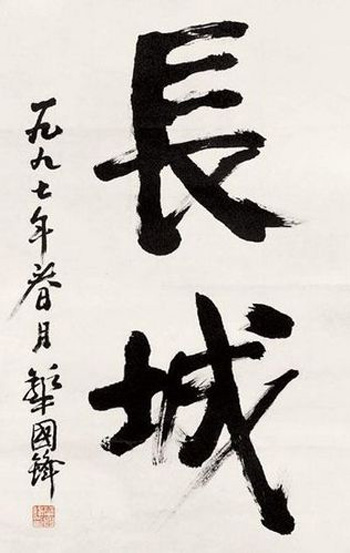 長城
一九九七年春月 華國鋒